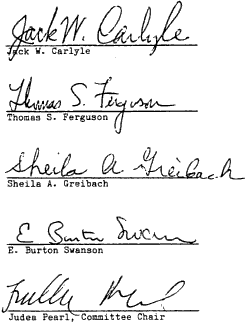 Jack W. Carlyle
Jack W. Carlyle
Thomas S. Ferguson
Thomas S. Ferguson
Sheila A. Greibach
Sheila A. Greibach
E Burton Swanson
E. Burton Swanson
Judea Pearl, Committee Chair